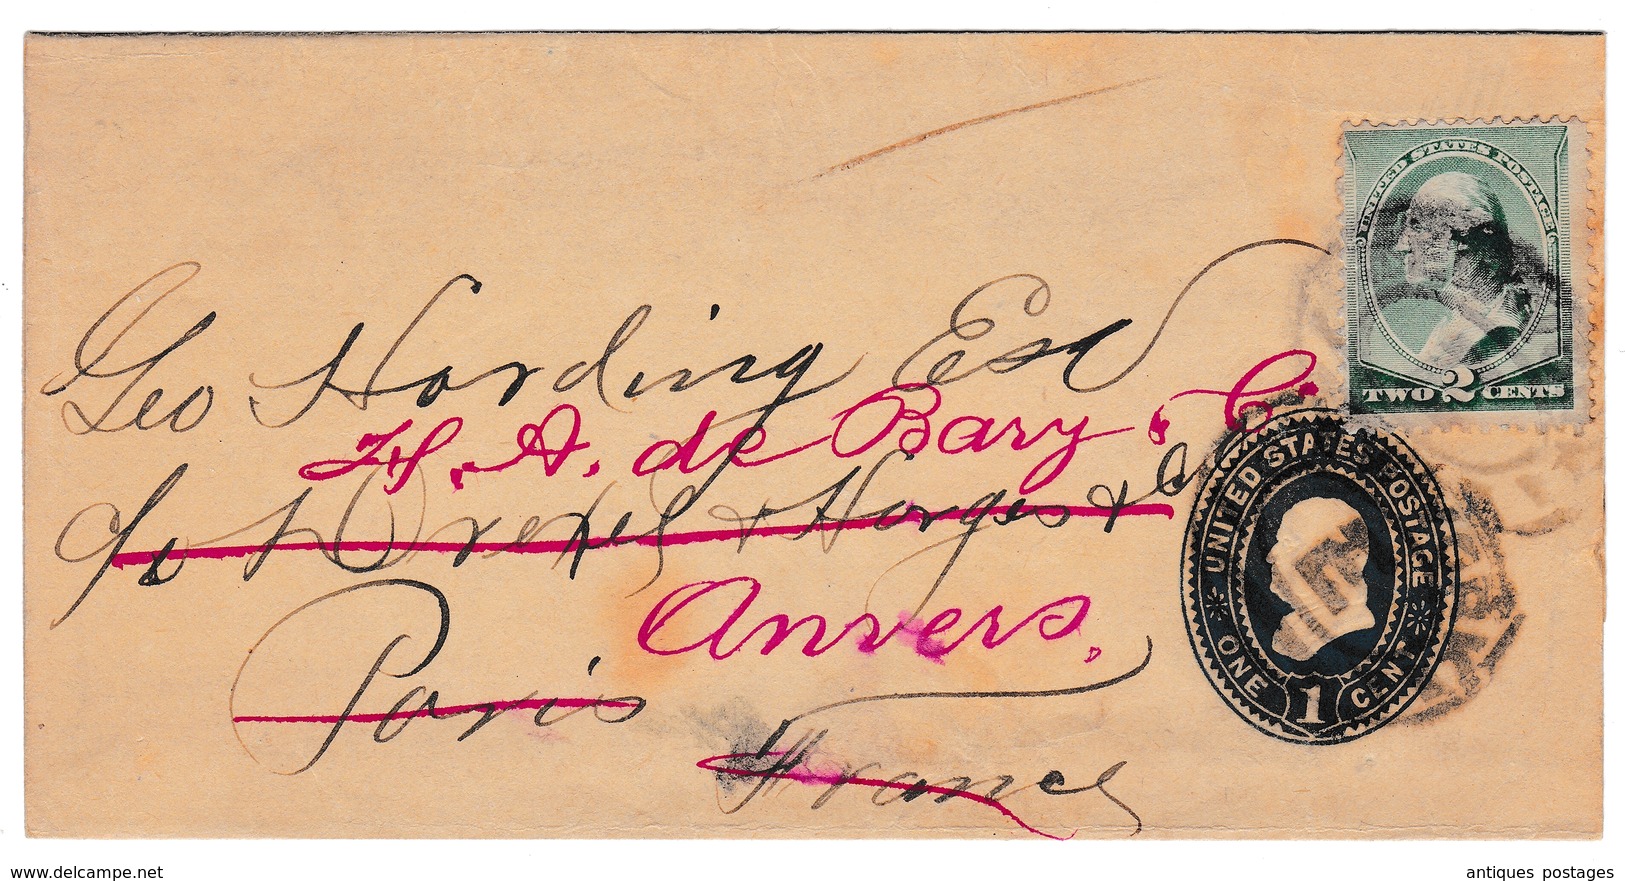 UNITED STATES POSTAGE
TWO 2 CENTS
Geo Harding Esq
H. A. de Bary & Co
c/o Drexel & Harjes & Co
Anvers.
Paris
France
UNITED STATES POSTAGE
ONE 1 CENT
www.delcampe.net
antiques postages